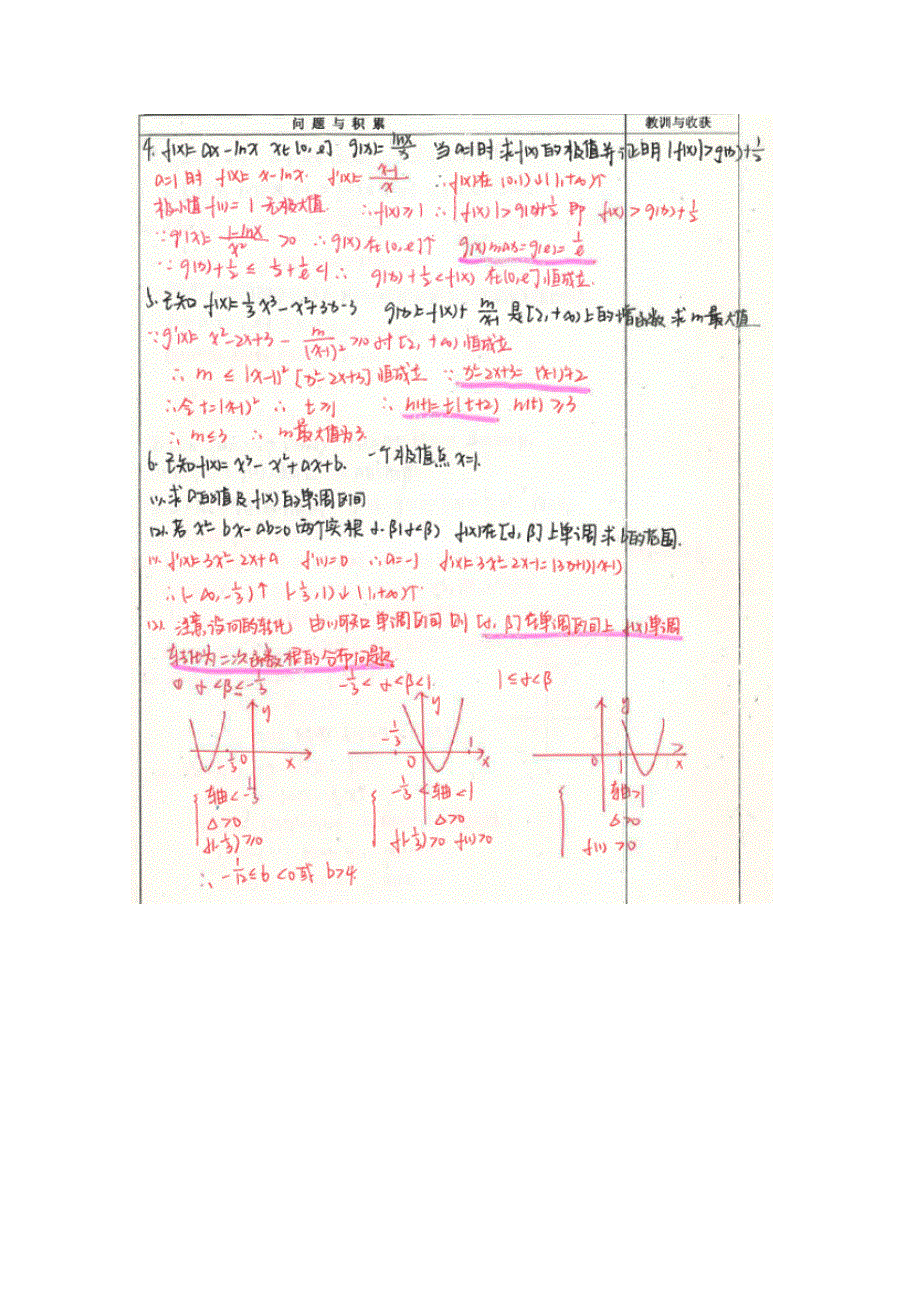 问题与积累 教训与收获
4. f(x)= ax-lnx x∈(0,e] g(x)= lnx/x 当a=1时 求f(x)的极值并证明 |f(x)|>g(x)+1/2
a=1时 f(x)= x-lnx. f'(x)= (x-1)/x ∴f(x)在(0,1)↓(1,+∞)↑
极小值f(1)=1 无极大值. ∴f(x)≥1 ∴|f(x)|>g(x)+1/2 即 f(x)>g(x)+1/2
∵g'(x)= (1-lnx)/x² >0 ∴g(x)在(0,e]↑ g(x)max=g(e)= 1/e
∵g(x)+1/2 ≤ 1/2+1/e<1 ∴ g(x)+1/2<f(x) 在(0,e]恒成立.
5. 已知 f(x)=1/3x³-x²+3x-3 g(x)=f(x)+ m/(x-1) 是[2,+∞)上的增函数 求m最大值
∵g'(x)= x²-2x+3- m/(x-1)² ≥0对[2,+∞)恒成立
∴ m ≤ (x-1)²[x²-2x+3]恒成立 ∵x²-2x+3=(x-1)²+2
∴令t=(x-1)² ∴ t≥1 ∴h(t)=t(t+2) h(t)≥3
∴m≤3 ∴ m最大值为3.
6. 已知f(x)=x³-x²+ax+b. 一个极值点x=1.
(1).求a的值及f(x)的单调区间
(2).若x²-bx-ab=0两个实根α.β(α<β) f(x)在[α,β]上单调求b的范围.
(1). f'(x)=3x²-2x+a f'(1)=0 ∴a=-1 f'(x)=3x²-2x-1=(3x+1)(x-1)
∴(-∞,-1/3)↑ (-1/3,1)↓(1,+∞)↑
(2). 注意设问的转化 由(1)可知单调区间则[α,β]在单调区间上 f(x)单调
转化为二次函数根的分布问题.
① α<β≤-1/3 -1/3<α<β<1. 1≤α<β
y y y
-1/3 0 x -1/3 0 1 x 0 1 x
轴<-1/3 -1/3<轴<1 轴>1
△>0 △>0 △>0
f(-1/3)≥0 f(-1/3)>0 f(1)>0 f(1)>0
∴-1/12≤b<0或b>4.